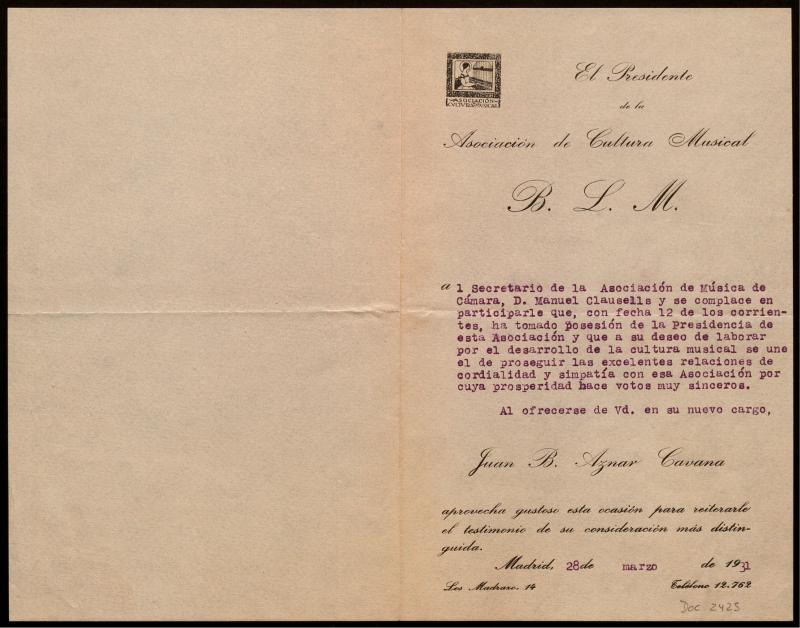 ASOCIACIÓN
CVLTVRA MVSICAL
El Presidente
de la
Asociación de Cultura Musical
B. L. M.
al Secretario de la Asociación de Música de
Cámara, D. Manuel Clausells y se complace en
participarle que, con fecha 12 de los corrien-
tes, ha tomado posesión de la Presidencia de
esta Asociación y que a su deseo de laborar
por el desarrollo de la cultura musical se une
el de proseguir las excelentes relaciones de
cordialidad y simpatía con esa Asociación por
cuya prosperidad hace votos muy sinceros.
Al ofrecerse de Vd. en su nuevo cargo,
Juan B. Aznar Cavana
aprovecha gustoso esta ocasión para reiterarle
el testimonio de su consideración más distin-
guida.
Madrid, 28 de marzo de 1931
Los Madrazo. 14 Teléfono 12.762
Doc 2425